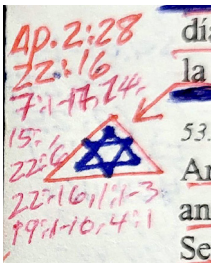 Ap. 2:28
22:16
7:1-17, 14:
15:
22:6
22:16, 1:1-3
19:1-10, 4:1
día
la
53.
an
Se